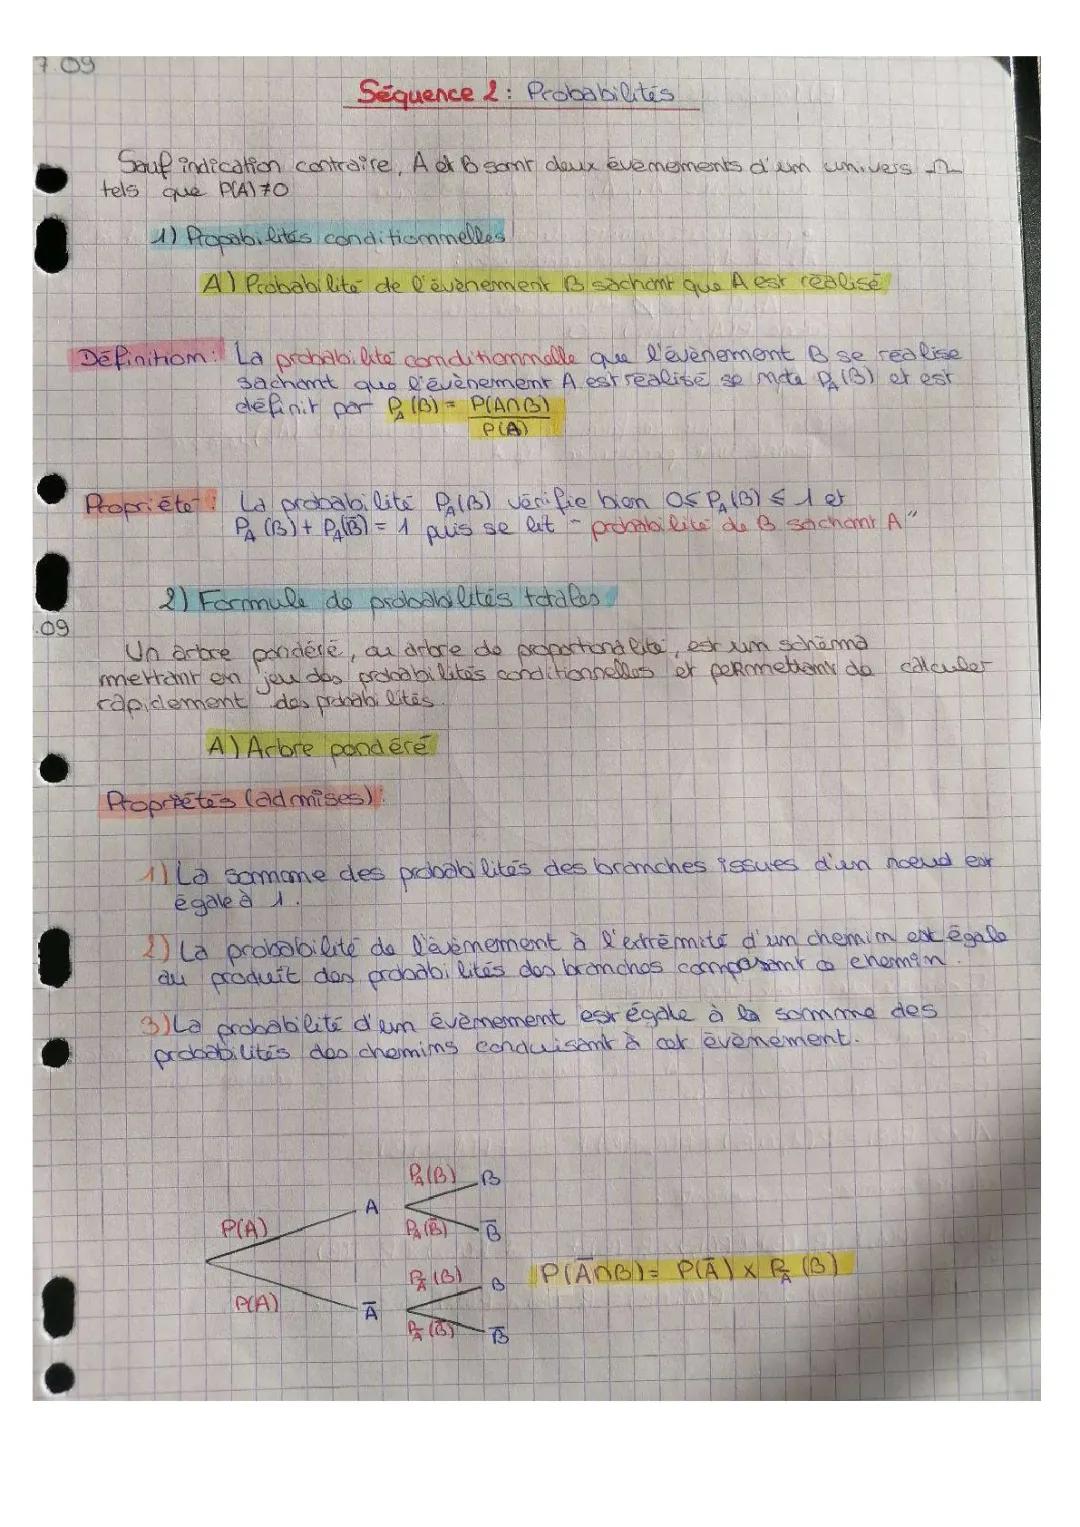 7.09
Séquence 2 : Probabilités
Sauf indication contraire, A et B sont deux évènements d'un univers Ω
tels que P(A)≠0
1) Propabilités conditionnelles
A) Probabilité de l'évènement B sachant que A est réalisé
Définition : La probabilité conditionnelle que l'évènement B se réalise
sachant que l'évènement A est réalisé se note P_A(B) et est
définit par P_A(B) = P(A∩B)
P(A)
Propriété : La probabilité P_A(B) vérifie bien 0≤P_A(B)≤1 et
P_A(B) + P_A(B̅) = 1 puis se lit "probabilité de B sachant A"
2) Formule de probabilités totales
.09
Un arbre pondéré, ou arbre de proportionalité, est um schéma
mettant en jeu des probabilités conditionnelles et permettant de calculer
rapidement des probabilités.
A) Arbre pondéré
Propriétés (admises) :
1) La somme des probabilités des branches issues d'un noeud est
égale à 1.
2) La probabilité de l'évènement à l'extrémité d'un chemin est égale
au produit des probabilités des branches composant ce chemin.
3) La probabilité d'un évènement est égale à la somme des
probabilités des chemins conduisant à cet évènement.
P_A(B) B
P(A) A
P_A(B̅) B̅
P_A̅(B) B P(A̅∩B) = P(A̅) x P_A̅(B)
P(A) A̅
P_A̅(B̅) B̅